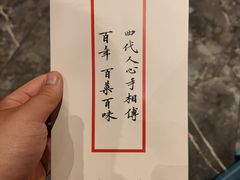 四代人心手相傳
百年 百菜百味